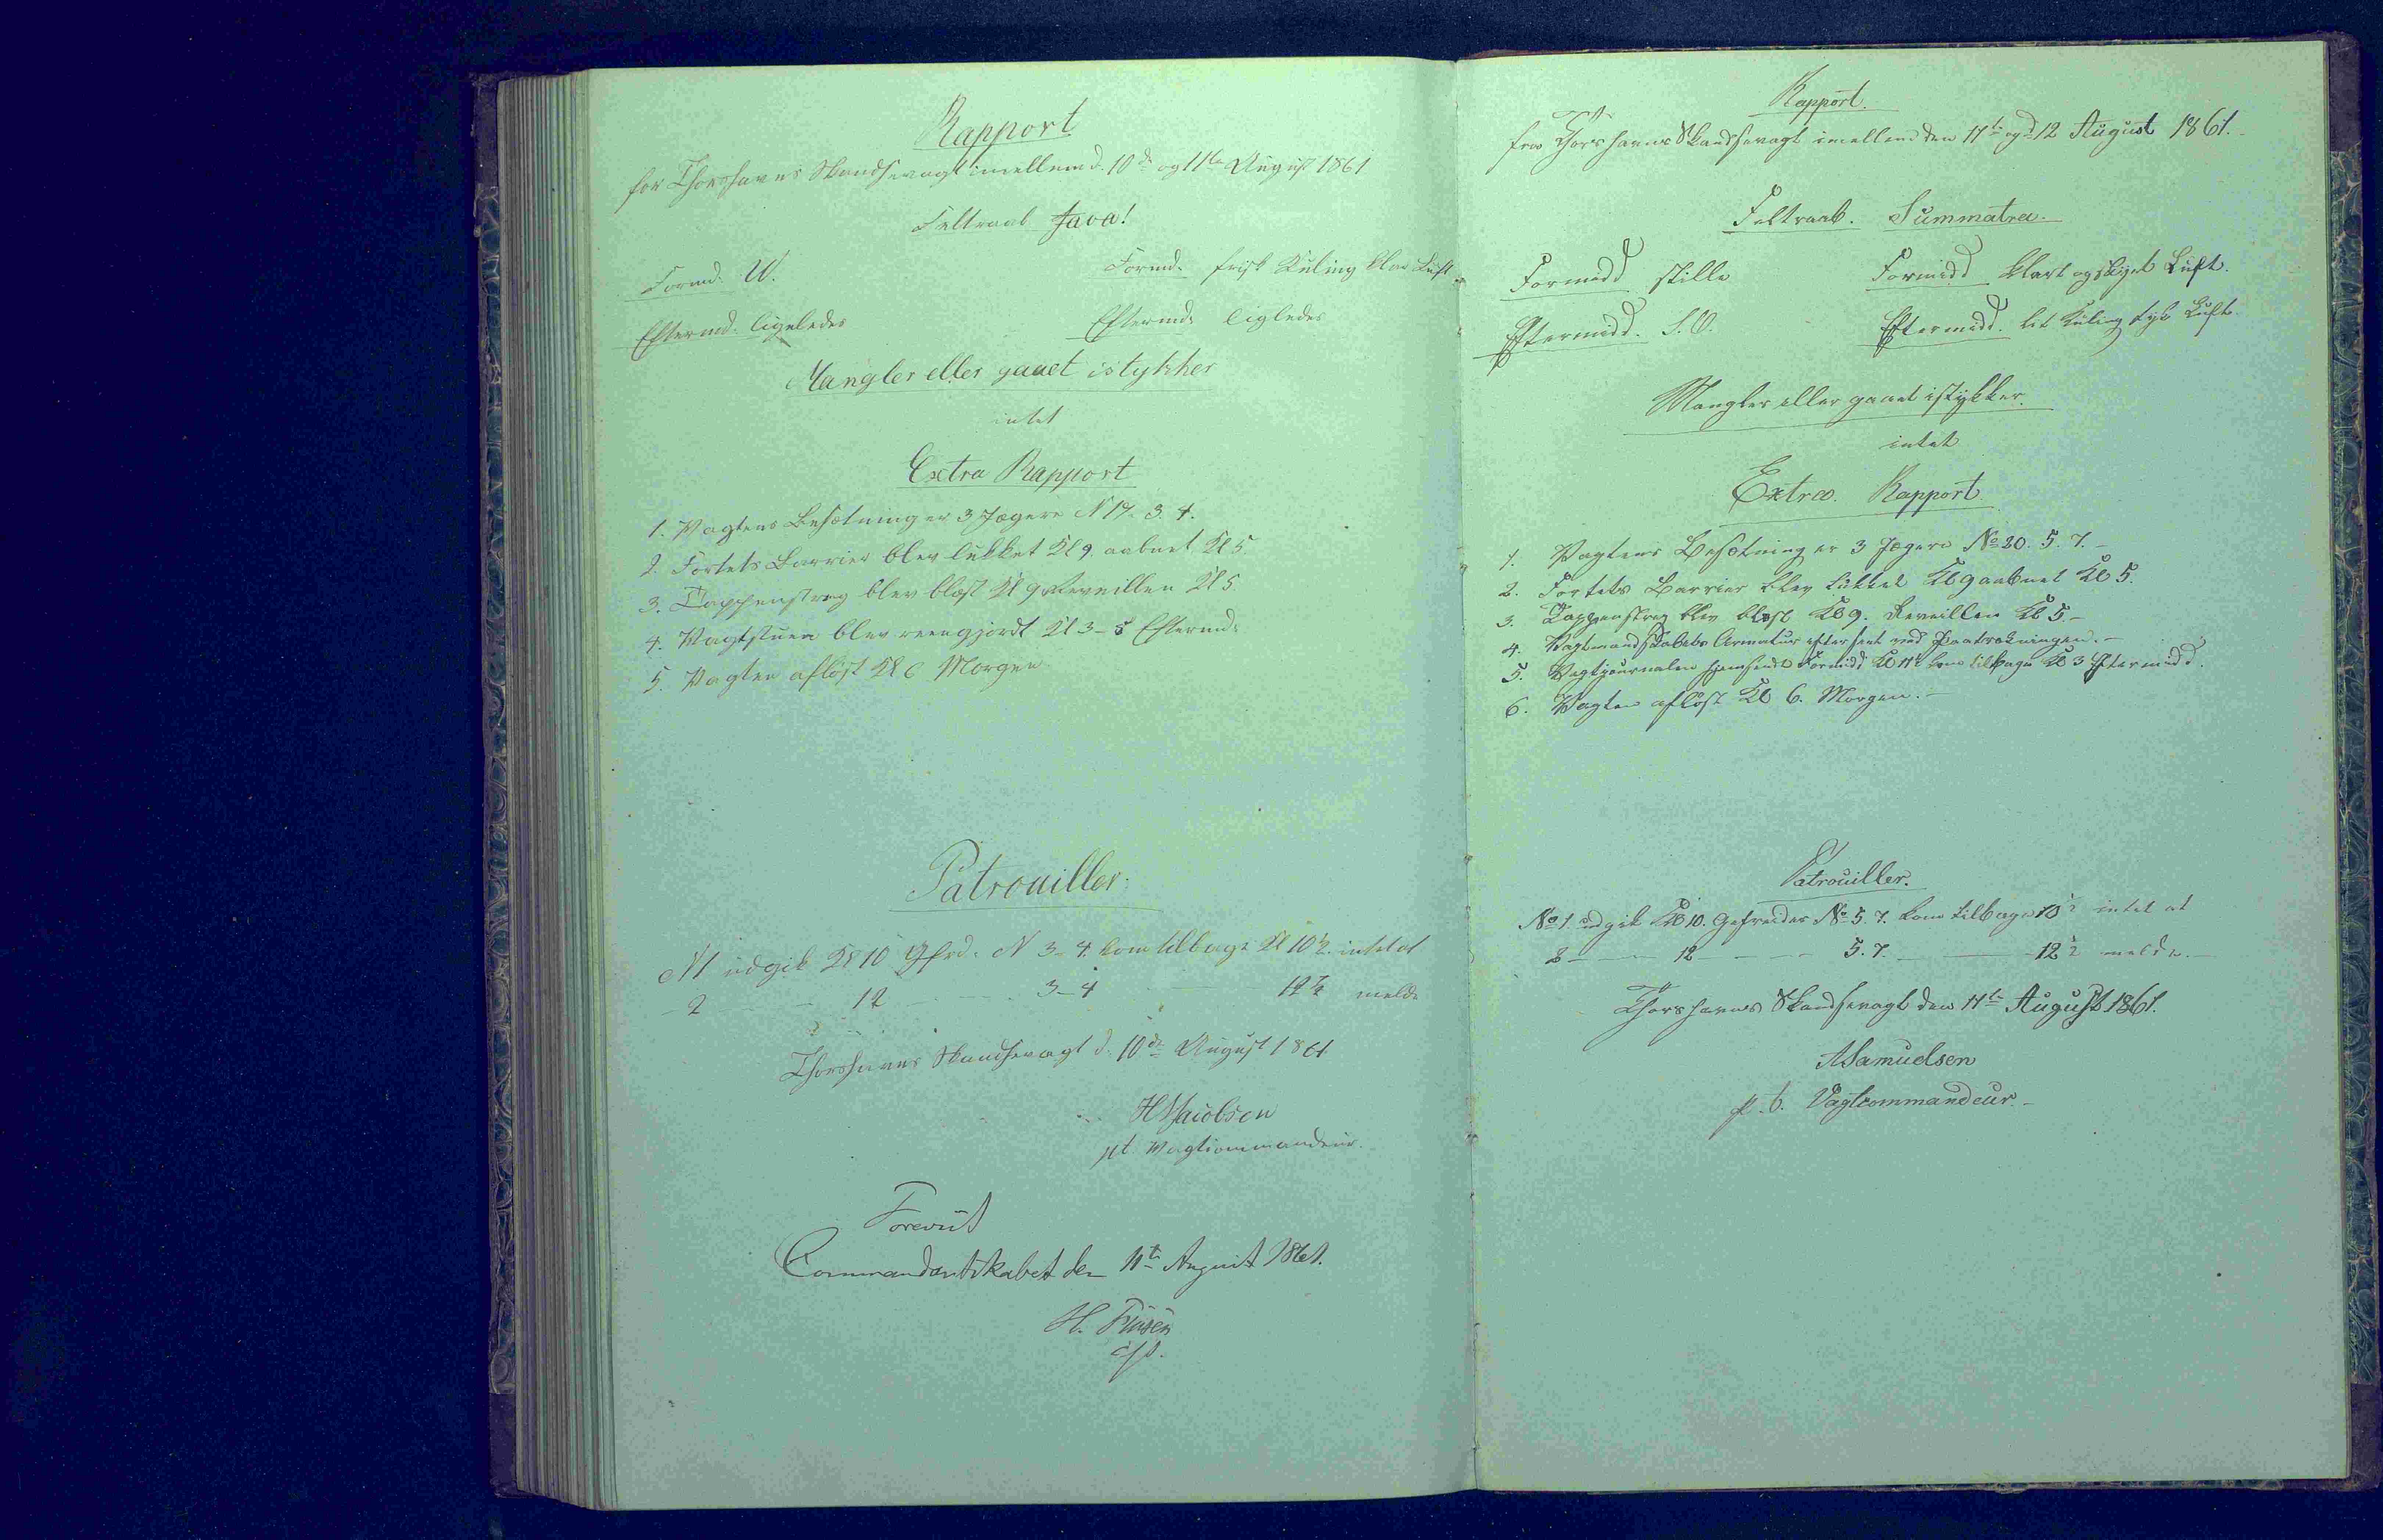 Rapport
for Thorshavns Skandsevagt imellem d. 10de og 11te August 1861
Feltraab Java!
Formd. V.
Formd. frisk Kuling klar Luft
Eftermd. ligeledes
Eftermd. ligledes
Mangler eller gaaet istykker
intet
Extra Rapport
1. Vagtens Besætning er 3 Jægere N 19. 3. 4.
2. Fortets Barrier blev lukket Kl 9. aabnet Kl 5.
3. Tappenstreg blev blæst Kl 9 Reveillen Kl 5.
4. Vagtstuen blev reengjordt Kl 3-5 Eftermd.
5. Vagten afløst Kl 6 Morgen
Patrouiller.
N 1 udgik Kl 10 Gfrd. N 3-4. kom tilbage Kl 10½ intet at
- 2 - - 12 - - - 3-4 - - 12½ melde
Thorshavns Skandsevagt d. 10de August 1861
H Jacobsen
pt. Vagtcommandeur.
Forevist
Commandantskabet den 11te August 1861.
Rapport.
fra Thorshavns Skandsevagt imellem den 11te og d 12 August 1861.
Feltraab. Summatra.
Formidd stille
Formidd klart og skyet Luft.
Eftermidd. S.V.
Eftermidd. lit Kuling tyk Luft.
Mangler eller gaaet istykker.
intet
Extra. Rapport
1. Vagtens Besætning er 3 Jægere No 20. 5. 7. -
2. Fortets Barrier blev lukket Kl 9 aabnet Kl 5.
3. Tappenstreg blev blæst Kl 9. Reveillen Kl 5. -
4. Vagtmandskabets Armatur efterseet ved Paatrækningen. -
5. Vagtjournalen hjemsendt Formidd Kl 11½ kom tilbage Kl 3 Eftermidd.
6. Vagten afløst Kl 6. Morgen. -
Patrouiller.
No 1. udgik Kl 10. Gefreider No 5. 7. kom tilbage 10½ intet at
2 - - 12 - - - 5. 7. - - 12½ melde. -
Thorshavns Skandsevagt den 11te August 1861.
A Samuelsen
p. t. Vagtcommandeur. -